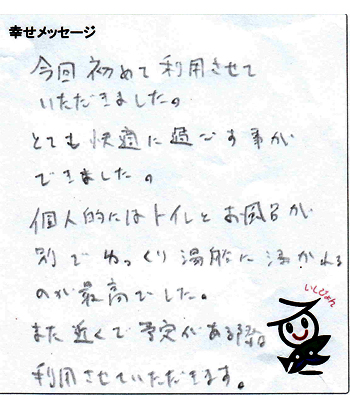 幸せメッセージ
今回初めて利用させて
いただきました。
とても快適に過ごす事が
できました。
個人的にはトイレとお風呂が
別でゆっくり湯船に浸かれる
のが最高でした。
また近くで予定がある際は
利用させていただきます。
いしぴょん